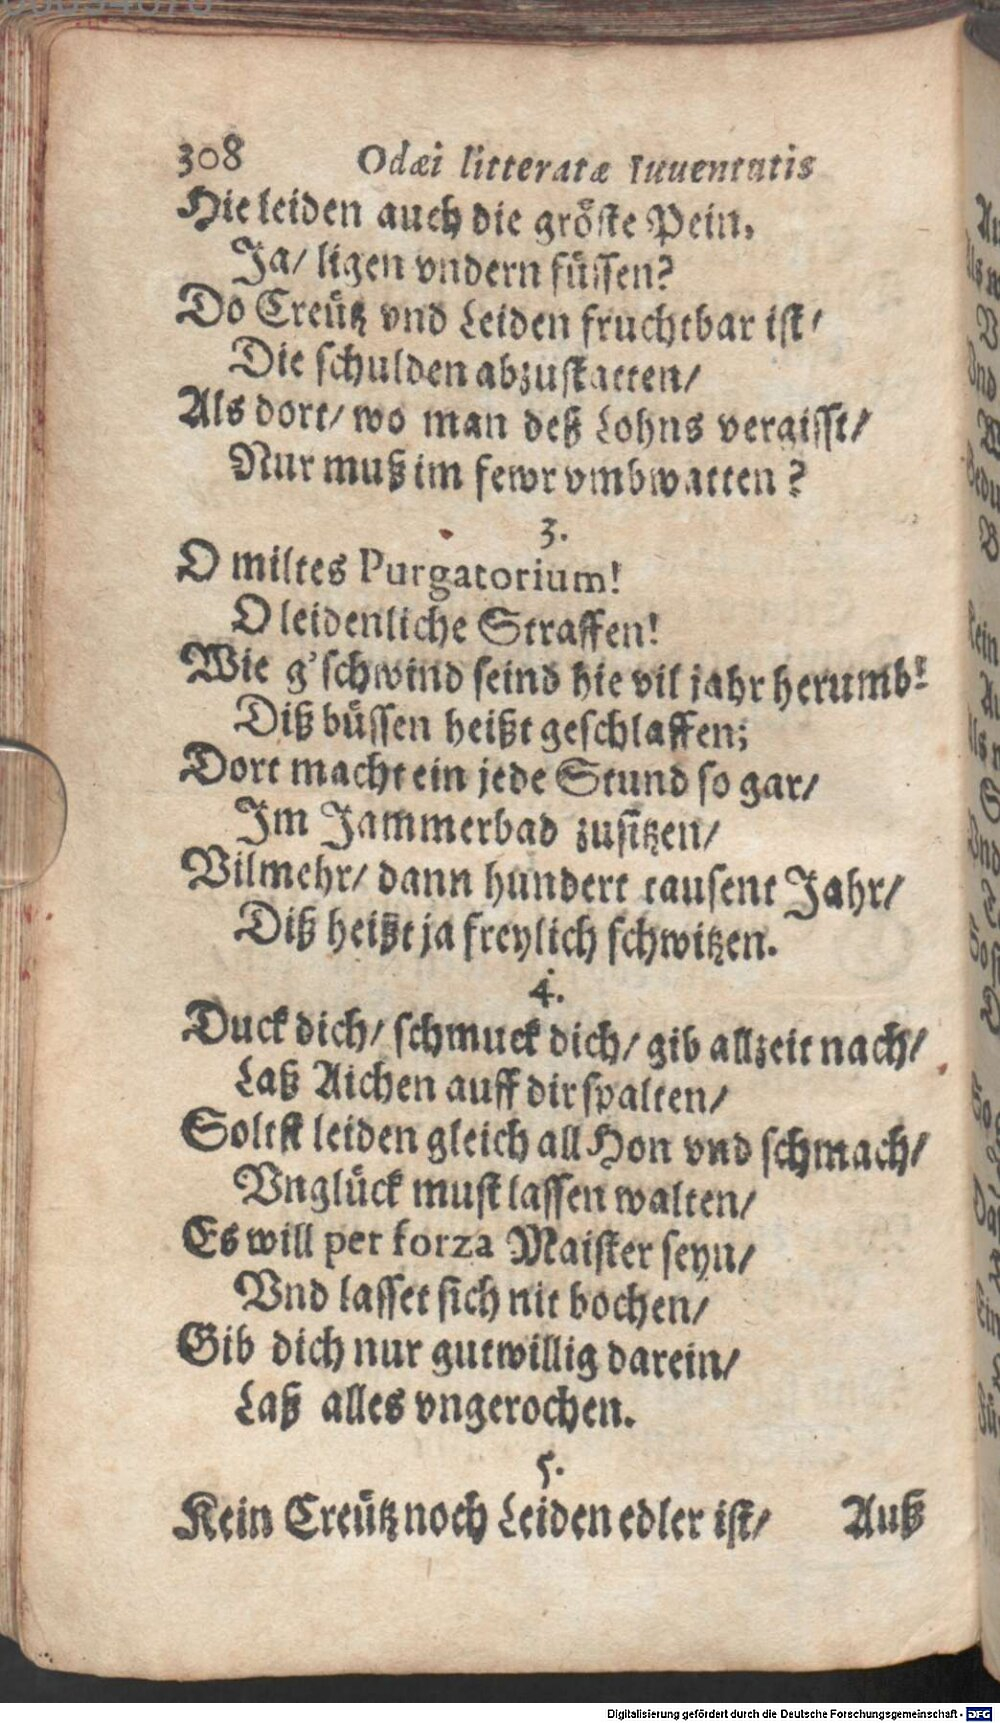 308 Odæi litteratæ Iuuentutis
Hie leiden auch die gröste Pein,
Ja/ ligen vndern füssen?
Do Creütz vnd Leiden fruchtbar ist/
Die schulden abzustatten/
Als dort/ wo man deß Lohns vergisst/
Nur muß im fewr vmbwatten?
3.
O miltes Purgatorium!
O leidenliche Straffen!
Wie g'schwind seind hie vil jahr herumb!
Diß büssen heißt geschlaffen;
Dort macht ein jede Stund so gar/
Im Jammerbad zusitzen/
Vilmehr/ dann hundert tausent Jahr/
Diß heißt ja freylich schwitzen.
4.
Duck dich/ schmuck dich/ gib allzeit nach/
Laß Aichen auff dir spalten/
Soltst leiden gleich all Hon vnd schmach/
Vnglück must lassen walten/
Es will per forza Maister seyn/
Vnd lasset sich nit bochen/
Gib dich nur gutwillig darein/
Laß alles vngerochen.
5.
Kein Creütz noch Leiden edler ist/
Auß
Digitalisierung gefördert durch die Deutsche Forschungsgemeinschaft - DFG